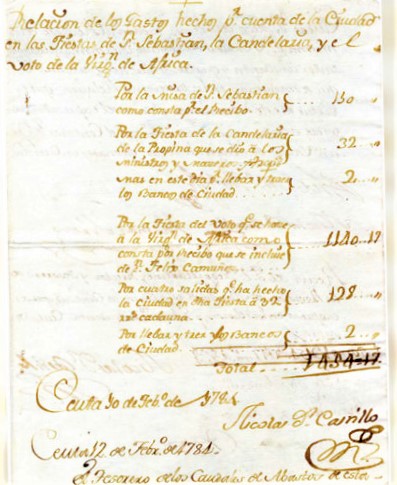 Relacion de los Gastos hechos pr. cuenta de la Ciudad
en las Fiestas de Sn. Sebastian, la Candelaria, y el
Voto de la Virgn. de Africa.
Por la misa de Sn. Sebastian
como consta pr. el Recibo { ... 150 "
Por la Fiesta de la Candelaria
de la Propina que se dió a los
Ministros y Maceros { ... 32 ... "
mas en este dia pr. llebar y traer
los Bancos de Ciudad { 2 ... "
Por la Fiesta del Voto qe. se hace
à la Virgn. de Africa como
consta por Recibo que se incluie
de Dn. Felix Camuñez { 1140..17
Por cuatro salidas qe. ha hecho
la Ciudad en dha Fiesta à 32
rrs. cada una { 128 ... "
Por llebar y traer los Bancos
de Ciudad { 2 ... "
Total ... 1454..17
Ceuta 10 de Febo. de 1784
Nicolas Dn. Castillo
Ceuta 12 de Febro. de 1784.
El Tesorero de los Caudales de Abastos de esta